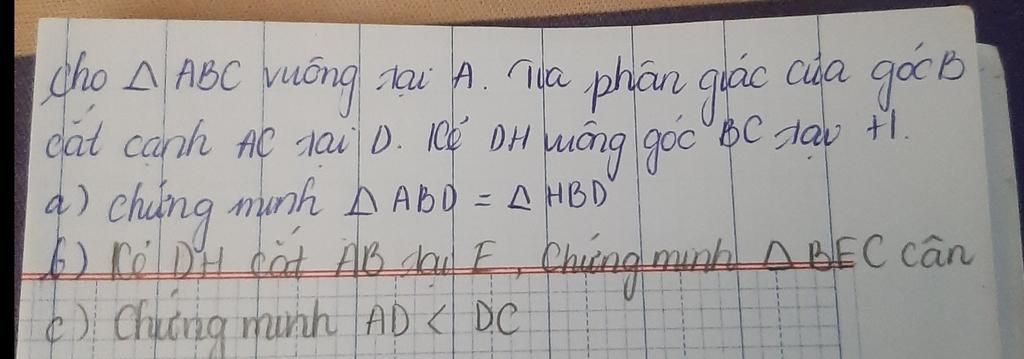 Cho Δ ABC vuông tại A. Tia phân giác của góc B
cắt cạnh AC tại D. Kẻ DH vuông góc BC tại H.
a) chứng minh Δ ABD = Δ HBD
b) Kẻ DH cắt AB tại E, Chứng minh Δ BEC cân
c) Chứng minh AD < DC